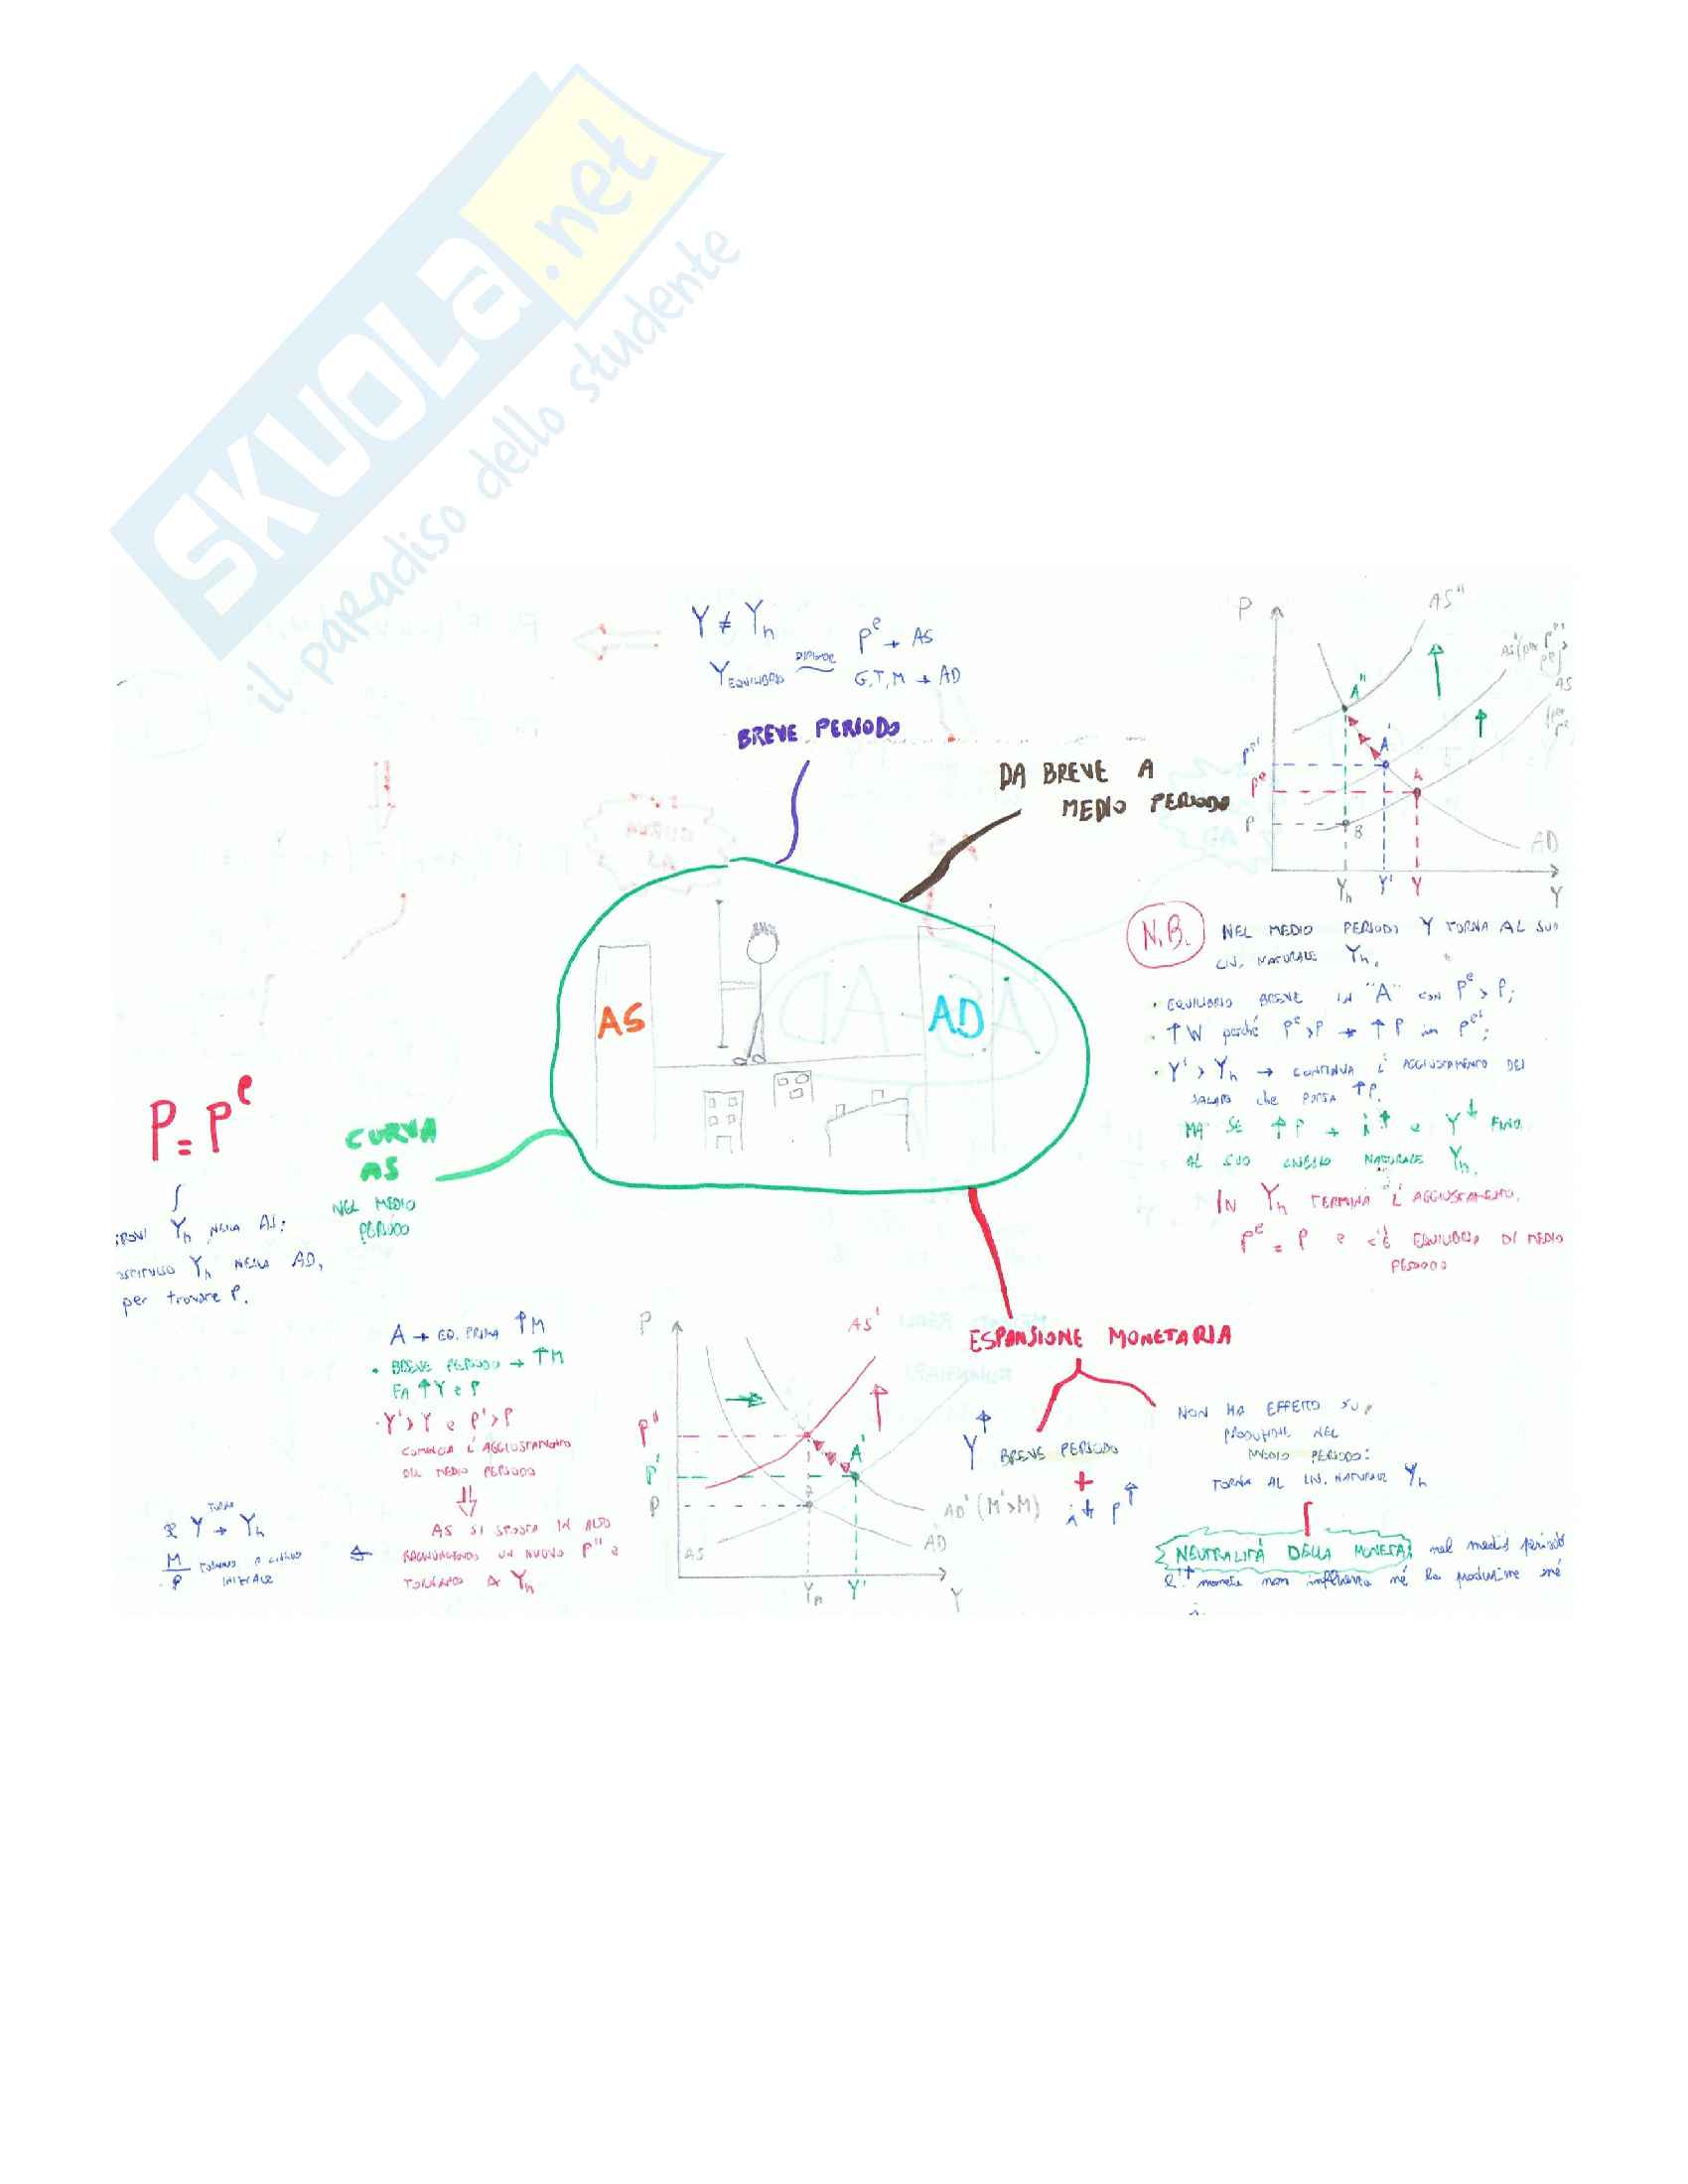 SKUOLa.net
il paradiso dello studente
Y ≠ Yn
Y EQUILIBRIO DIPENDE P^e → AS
G,T,M → AD
BREVE PERIODO
DA BREVE A
MEDIO PERIODO
P
AS"
AS
A"
A'
A
P^e
P
B
AD
Yn Y' Y
Y
N.B. NEL MEDIO PERIODO Y TORNA AL SUO
LIV. NATURALE Yn.
• EQUILIBRIO BREVE IN "A" CON P^e > P;
• ↑W perché P^e>P → ↑P in P^e';
• Y' > Yn → CONTINUA L'AGGIUSTAMENTO DEL
SALARIO che PORTA ↑P.
MA SE ↑P → i↑ e Y↓ FINO
AL SUO LIVELLO NATURALE Yn.
IN Yn TERMINA L'AGGIUSTAMENTO.
P^e = P e C'È EQUILIBRIO DI MEDIO
PERIODO
AS
AD
P = P^e
CURVA
AS
NEL MEDIO
PERIODO
Yn NELLA AS;
Yn NELLA AD,
per trovare P.
A → EQ. PRIMA ↑M
• BREVE PERIODO → ↑M
FA ↑Y e P
• Y'>Y e P'>P
COMINCIA L'AGGIUSTAMENTO
DEL MEDIO PERIODO
⇓
AS SI SPOSTA IN ALTO
RAGGIUNGENDO UN NUOVO P" e
TORNANDO A Yn
Y → Yn
M/P TORNANO A LIVELLO
INIZIALE
P
AS'
P"
P'
P
A'
A
AD' (M'>M)
AD
AS
Yn Y'
Y
ESPANSIONE MONETARIA
Y↑ BREVE PERIODO
+
i↓ P↑
NON HA EFFETTO SU
PRODUZIONE NEL
MEDIO PERIODO:
TORNA AL LIV. NATURALE Yn
NEUTRALITÀ DELLA MONETA: nel medio periodo
l'↑ moneta non influenza né la produzione né
i.